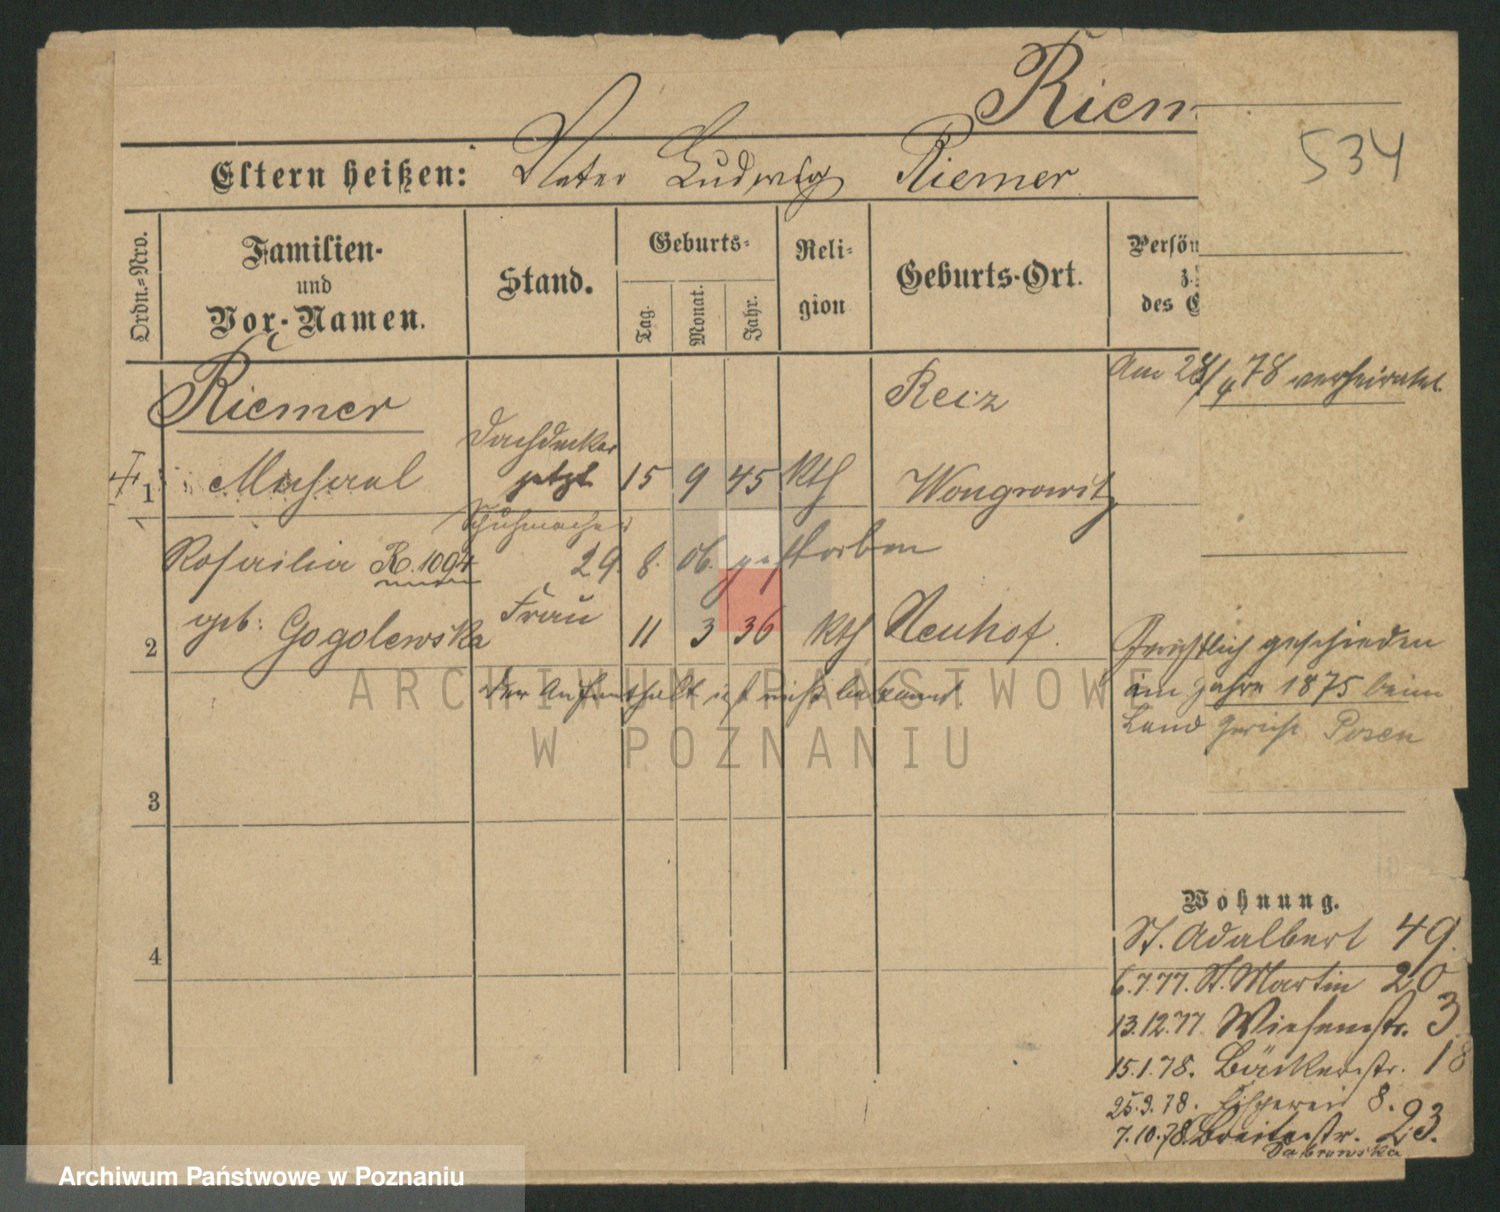 Riem
534
Eltern heißen: Vater Ludwig Riemer
Ordn.-Nro.
Familien-
und
Vor-Namen.
Stand.
Geburts-
Tag.
Monat.
Jahr.
Reli-
gion
Geburts-Ort.
Persön
z.
des G
Riemer
Reiz
Am 28/4 78 verheirathet
Dachdecker
1 Michael jetzt 15 9 45 kth Wongrowitz
Schuhmacher
Rosailia R. 1094 29. 8. 06. gestorben
geb: Gogolewska Frau
2 11 3 36 kth Neuhof.
Gerichtlich geschieden
der Aufenthalt ist nicht bekannt.
im Jahre 1875 beim
Land Gericht Posen
ARCHIWUM PAŃSTWOWE
W POZNANIU
3
4
Wohnung.
St. Adalbert 49.
6.7.77. St. Martin 20
13.12.77. Wiesenstr. 3
15.1.78. Bäckerstr. 18
25.9.78. Fischerei 8.
7.10.78. Breitestr. 23.
Dabrowska
Archiwum Państwowe w Poznaniu